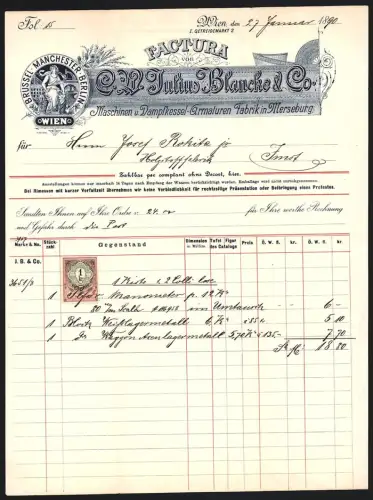 Fol. 15
Wien, den 27 Januar 1890
I. GETREIDEMARKT 8
BRÜSSEL, MANCHESTER, BERLIN.
WIEN
FACTURA
VON
C. W. Julius Blancke & Co
Maschinen u. Dampfkessel-Armaturen Fabrik in Merseburg.
für Herrn Josef Rokita jr
Imst
Zahlbar per comptant ohne Decort, hier.
Ausstellungen können nur innerhalb 14 Tagen nach Empfang der Waaren berücksichtigt werden. Emballage wird nicht zurückgenommen.
Bei Rimessen mit kurzer Verfallzeit übernehmen wir keine Verbindlichkeit für rechtzeitige Präsentation oder Beibringung eines Protestes.
Sandten Ihnen auf Ihre Ordre v. 24. für Ihre werthe Rechnung
und Gefahr durch die Post
Marke & No. Stückzahl Gegenstand Dimension in Millim. Tafel Figur des Catalogs Preis Ö. W. fl. kr. Ö. W. fl. kr. Ö. W. fl. kr.
J. B. & Co.
3650/3 1 Kiste & 2 Colli lose
1 Manometer p. 12 K
im Umtausch 6 -
1 Block Weißlagermetall 6 K à 85 5 10
1 do Waggon Axenlagermetall 5,70 K à 135 7 70
18 80